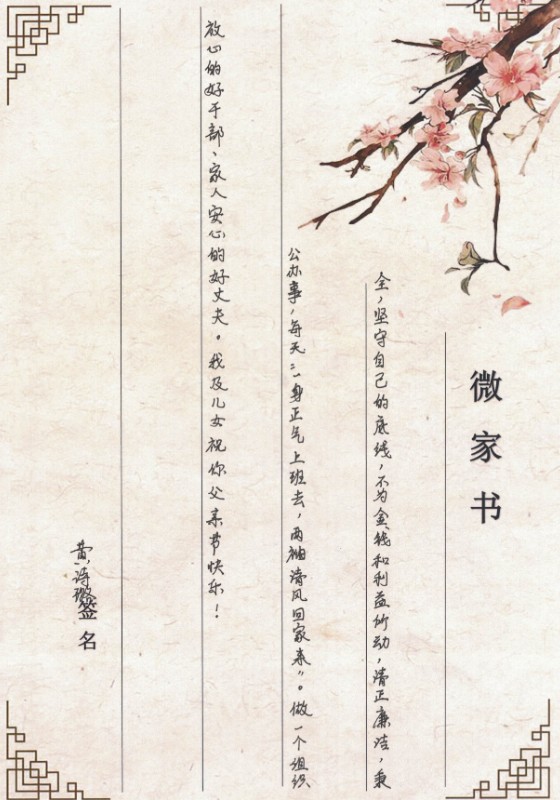 微家书
全，坚守自己的底线，不为金钱和利益所动，清正廉洁，秉
公办事，每天“一身正气上班去，两袖清风回家来”。做一个组织
放心的好干部、家人安心的好丈夫。我及儿女祝你父亲节快乐！
黄诗微
签名